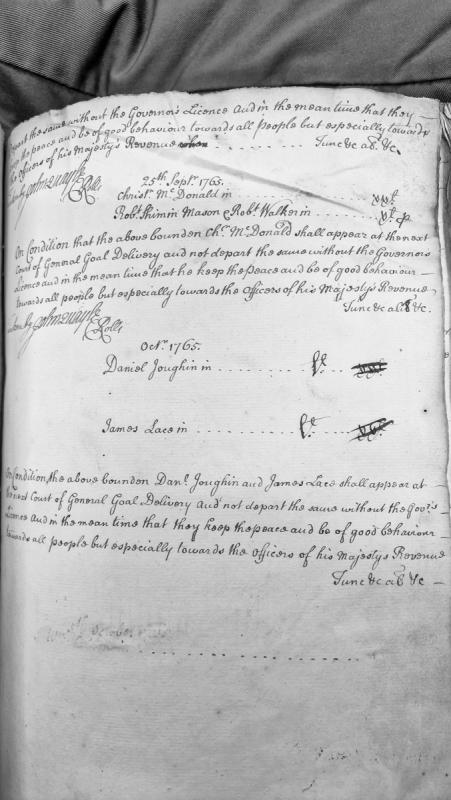 depart the same without the Governor's Licence And in the mean time that they
the peace and be of good behaviour towards all People but especially towards
the officers of his Majesty's Revenue . . . . . . . . . . Tunc &c ab. &c.
Rolls
25th Sept. 1765.
Christ. Mc.Donald in . . . . . . . . . .
Robt. Shimin Mason & Robt. Walker in . . . . . .
On Condition that the above bounden Chr. Mc.Donald shall appear at the next
Court of General Goal Delivery and not depart the same without the Governors
Licence and in the mean time that he keep the Peace and be of good behaviour —
towards all people but especially towards the Officers of his Majestys Revenue
Tunc &c alib &c.
Rolls
Octr. 1765.
Daniel Joughin in . . . . . . . . . .
James Lace in . . . . . . . . . .
On Condition, the above bounden Danl. Joughin and James Lace shall appear at —
the next Court of General Goal Delivery And not depart the same without the Govrs
Licence And in the mean time that they keep the peace and be of good behaviour —
towards all people but especially towards the Officers of his Majestys Revenue
Tunc &c alib &c —
October